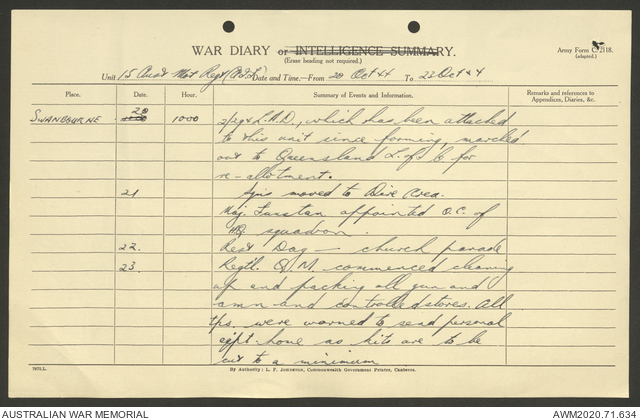 WAR DIARY or INTELLIGENCE SUMMARY.
(Erase heading not required.)
Army Form C. 2118.
(adapted.)
Unit 15 Aust Mot Regt (A.I.F.) Date and Time.—From 20 Oct 44 To 23 Oct 44
Place. Date. Hour. Summary of Events and Information. Remarks and references to Appendices, Diaries, &c.
SWANBOURNE 20 1000 2/29 L.A.D., which has been attached
to this unit since forming, marched
out to Queensland L. of C for
re-allotment.
21 Sqns moved to Dive Area.
Maj. appointed O.C. of
HQ squadron.
22. Rest Day — church parade
23. Regtl. Q.M. commenced cleaning
up and packing all gun and
amn and controlled stores. All
tps. were warned to send personal
eqpt home as kits are to be
cut to a minimum
7870.L.
By Authority: L. F. JOHNSTON, Commonwealth Government Printer, Canberra.
AUSTRALIAN WAR MEMORIAL
AWM2020.71.634